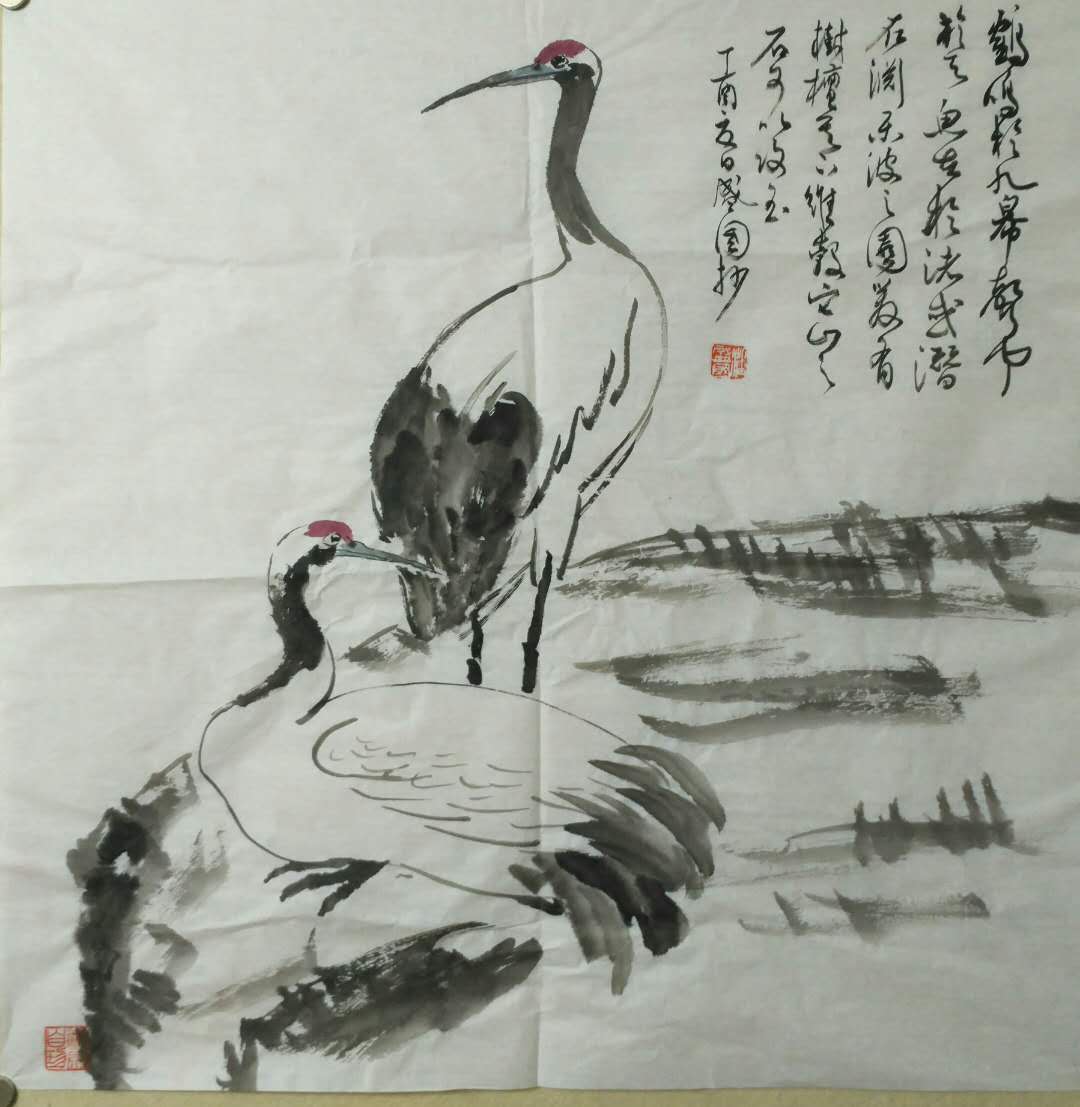 鶴鳴於九皋聲聞
於天魚在於渚或潛
在渊乐彼之園爰有
樹檀其下維榖它山之
石可以攻玉
丁酉夏日盛國抄